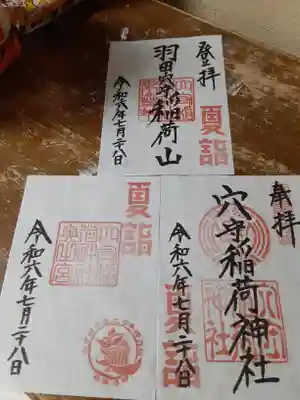 登拝
夏詣
羽田穴守稲荷山
令和六年七月二十八日
夏詣
令和六年七月二十八日
奉拝
穴守稲荷神社
夏詣
令和六年七月二十八日